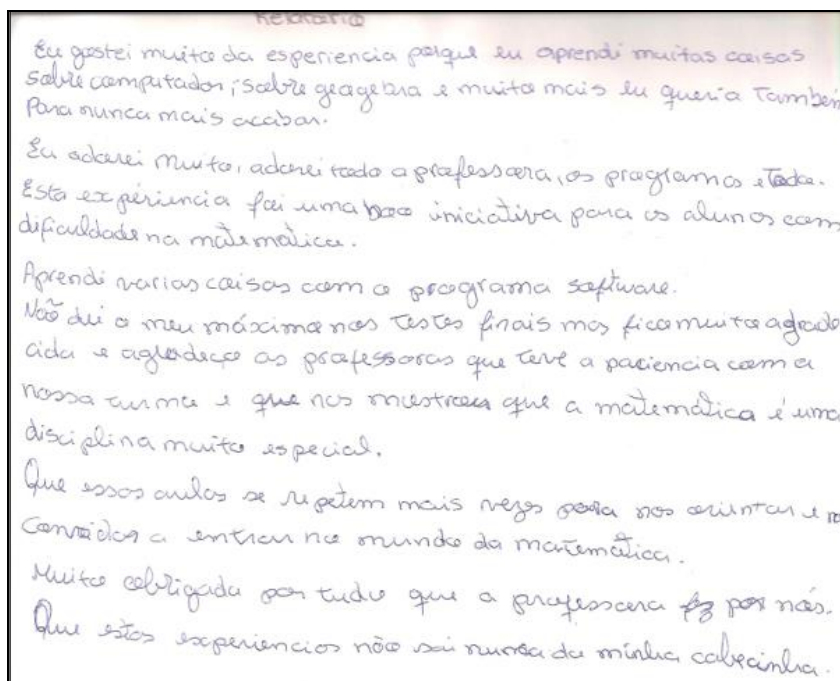 Relatorio
Eu gostei muito da esperiencia porque eu aprendi muitas coisas
sobre computador, sobre geogebra e muito mais eu queria também
Para nunca mais acabar.
Eu adorei muito, adorei todo a professora, os programas e toda.
Esta experiencia foi uma boa iniciativa para os alunos com
dificuldade na matemática.
Aprendi varias coisas com o programa software.
Não dei o meu máximo nos testes finais mas fico muito agrade
cida e agradeço as professoras que teve a paciencia com a
nossa turma e que nos mostrou que a matemática é uma
disciplina muito especial.
Que essas aulas se repetem mais vezes para nos orientar e
a entrar no mundo da matemática.
Muito obrigada por tudo que a professora fez por nós.
Que estas experiencias não sai nunca da minha cabecinha.